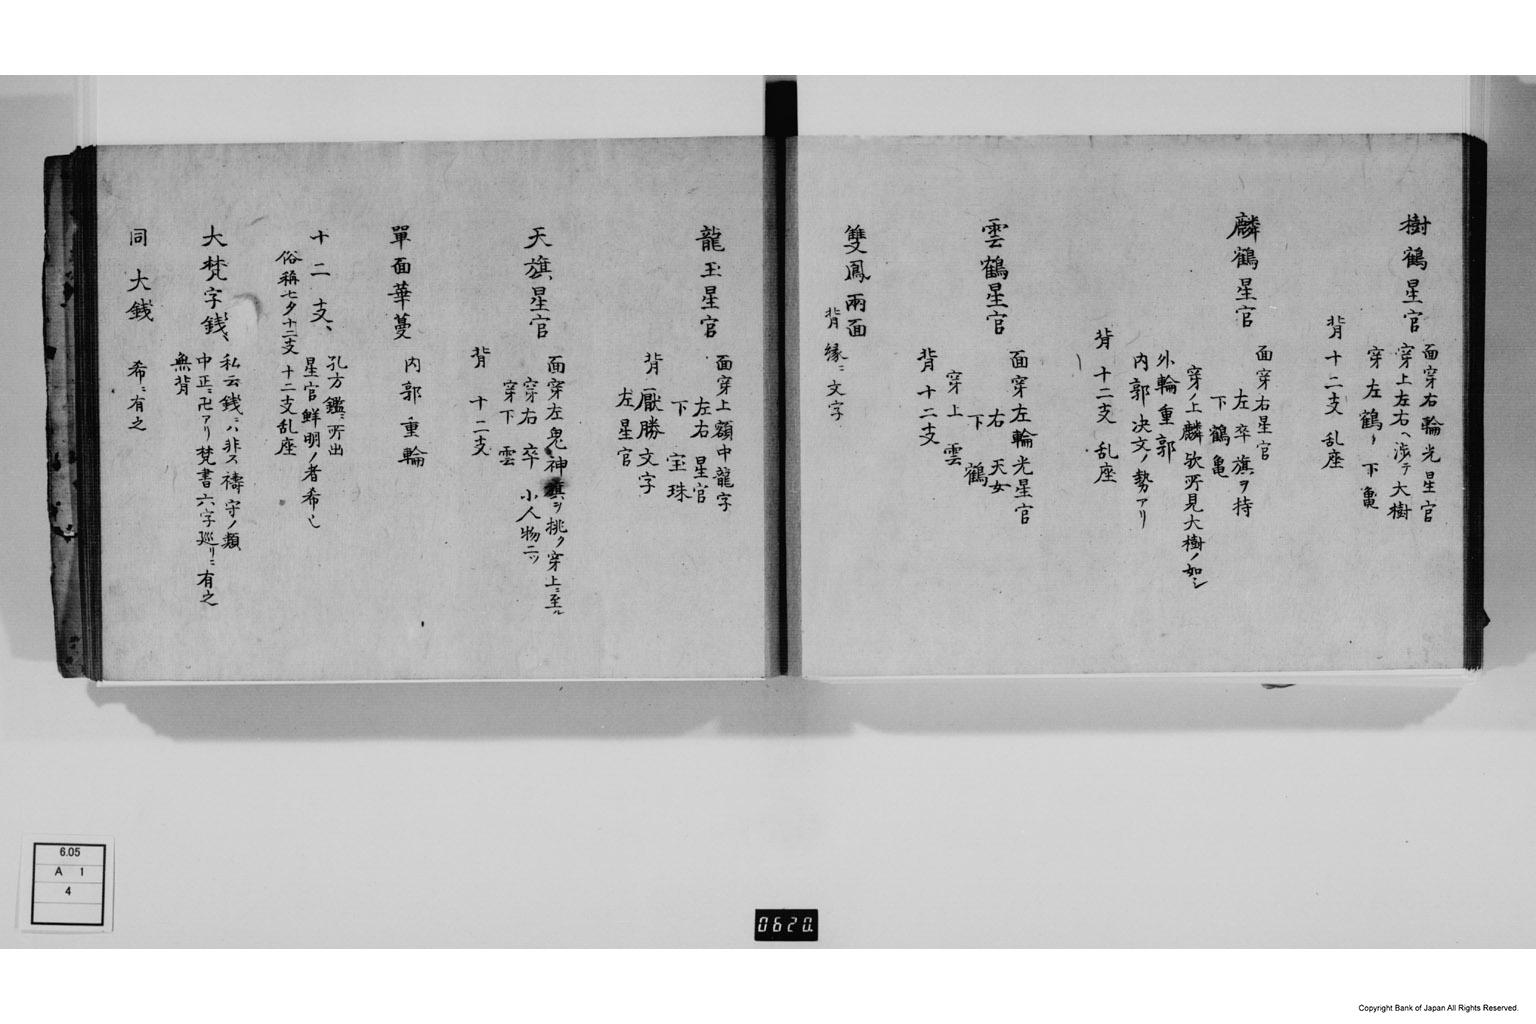 樹鶴星官
面穿右輪光星官
穿上左右ヘ渉テ大樹
穿左鶴 下亀
背十二支 乱座
麟鶴星官
面穿右星官
左卒旗ヲ持
下鶴亀
穿ノ上麟欤所見大樹ノ如シ
外輪重郭
内郭决文ノ勢アリ
背十二支 乱座
雲鶴星官
面穿左輪光星官
右 天女
下 鶴
穿上 雲
背十二支
雙鳳兩面
背縁ニ文字
龍玉星官
面穿上額中龍字
左右 星官
下 宝珠
背厭勝文字
左星官
天旗星官
面穿左鬼神旗ヲ挑ク穿上ニ至ル
穿右 卒 小人物二ツ
穿下 雲
背 十二支
單面華蔓
内郭重輪
十二支
孔方鑑ニ所出
星官鮮明ノ者希也
俗稱七夕十二支 十二支乱座
大梵字銭
私云銭ハ非ス祷守ノ類
中正ニ卍アリ梵書六字巡リニ有之
無背
同大銭
希ニ有之
6.05
A 1
4
0620.
Copyright Bank of Japan All Rights Reserved.